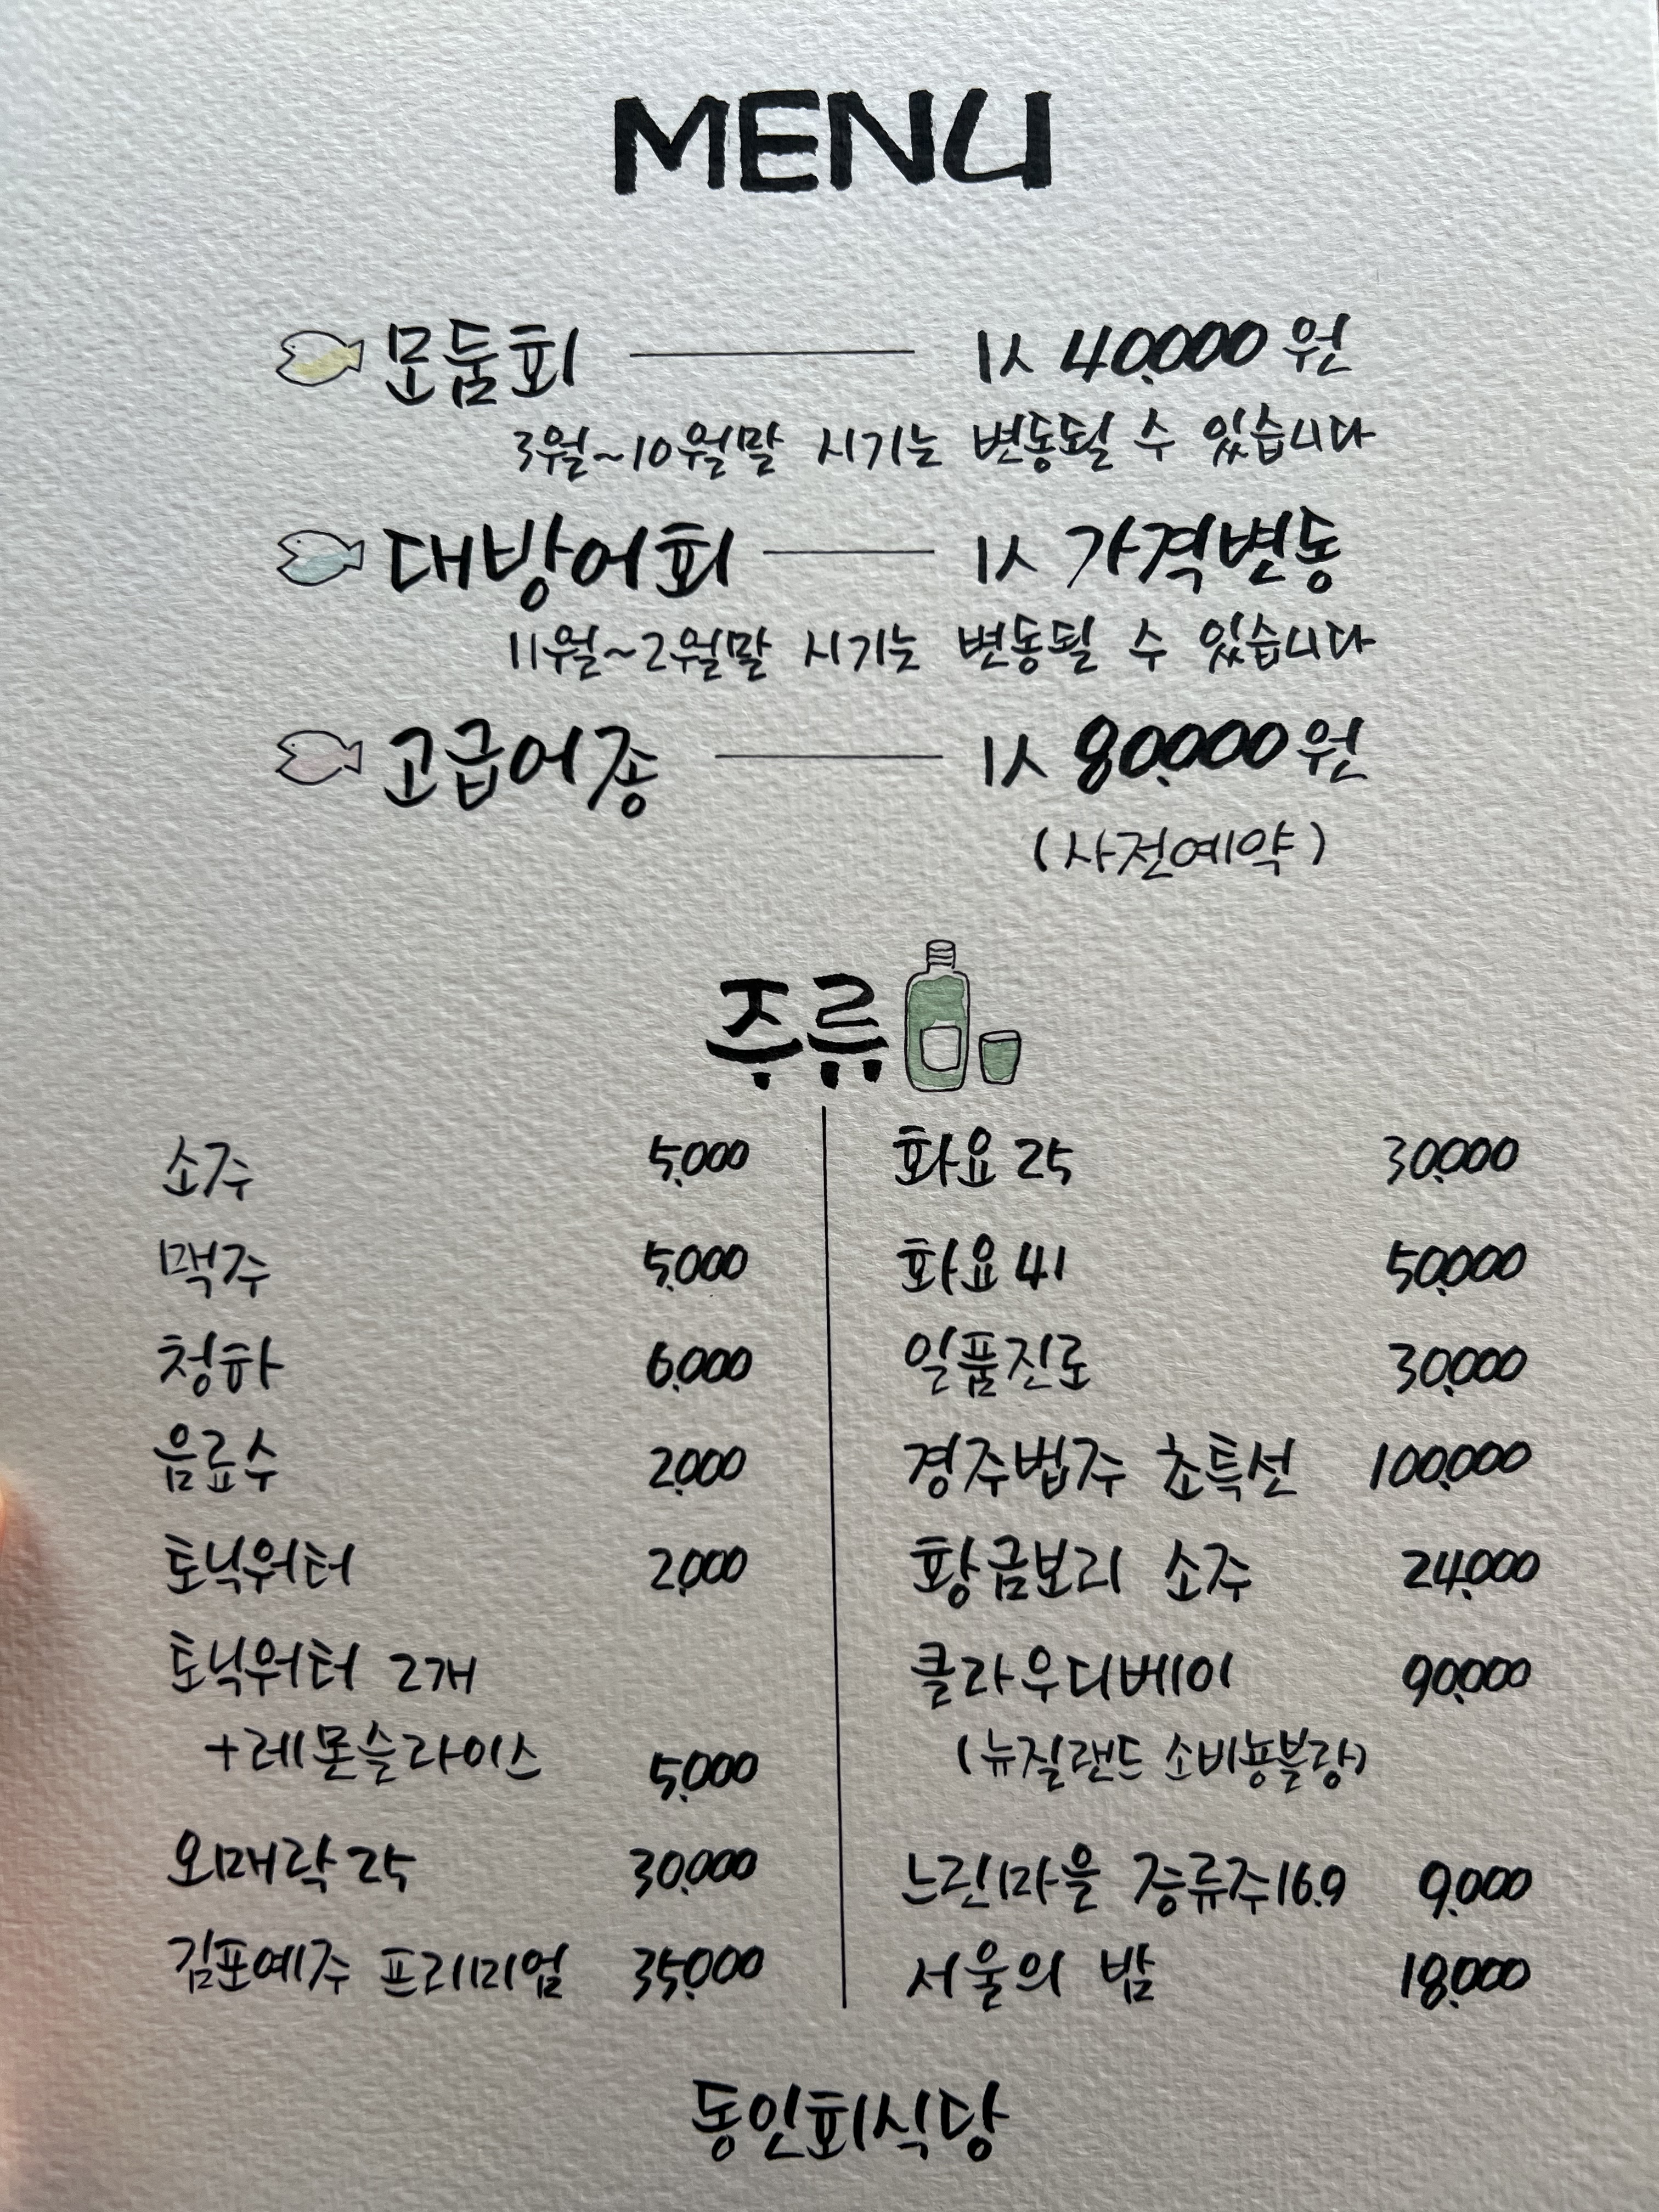 MENU
모둠회 1人 40,000원
3월~10월말 시기는 변동될 수 있습니다
대방어회 1人 가격변동
11월~2월말 시기는 변동될 수 있습니다
고급어종 1人 80,000원
(사전예약)
주류
소주 5,000
맥주 5,000
청하 6,000
음료수 2,000
토닉워터 2,000
토닉워터 2개
+레몬슬라이스 5,000
오매락25 30,000
김포예주 프리미엄 35,000
화요25 30,000
화요41 50,000
일품진로 30,000
경주법주 초특선 100,000
황금보리 소주 24,000
클라우디베이 90,000
(뉴질랜드 소비뇽블랑)
느린마을 증류주16.9 9,000
서울의 밤 18,000
동인회식당